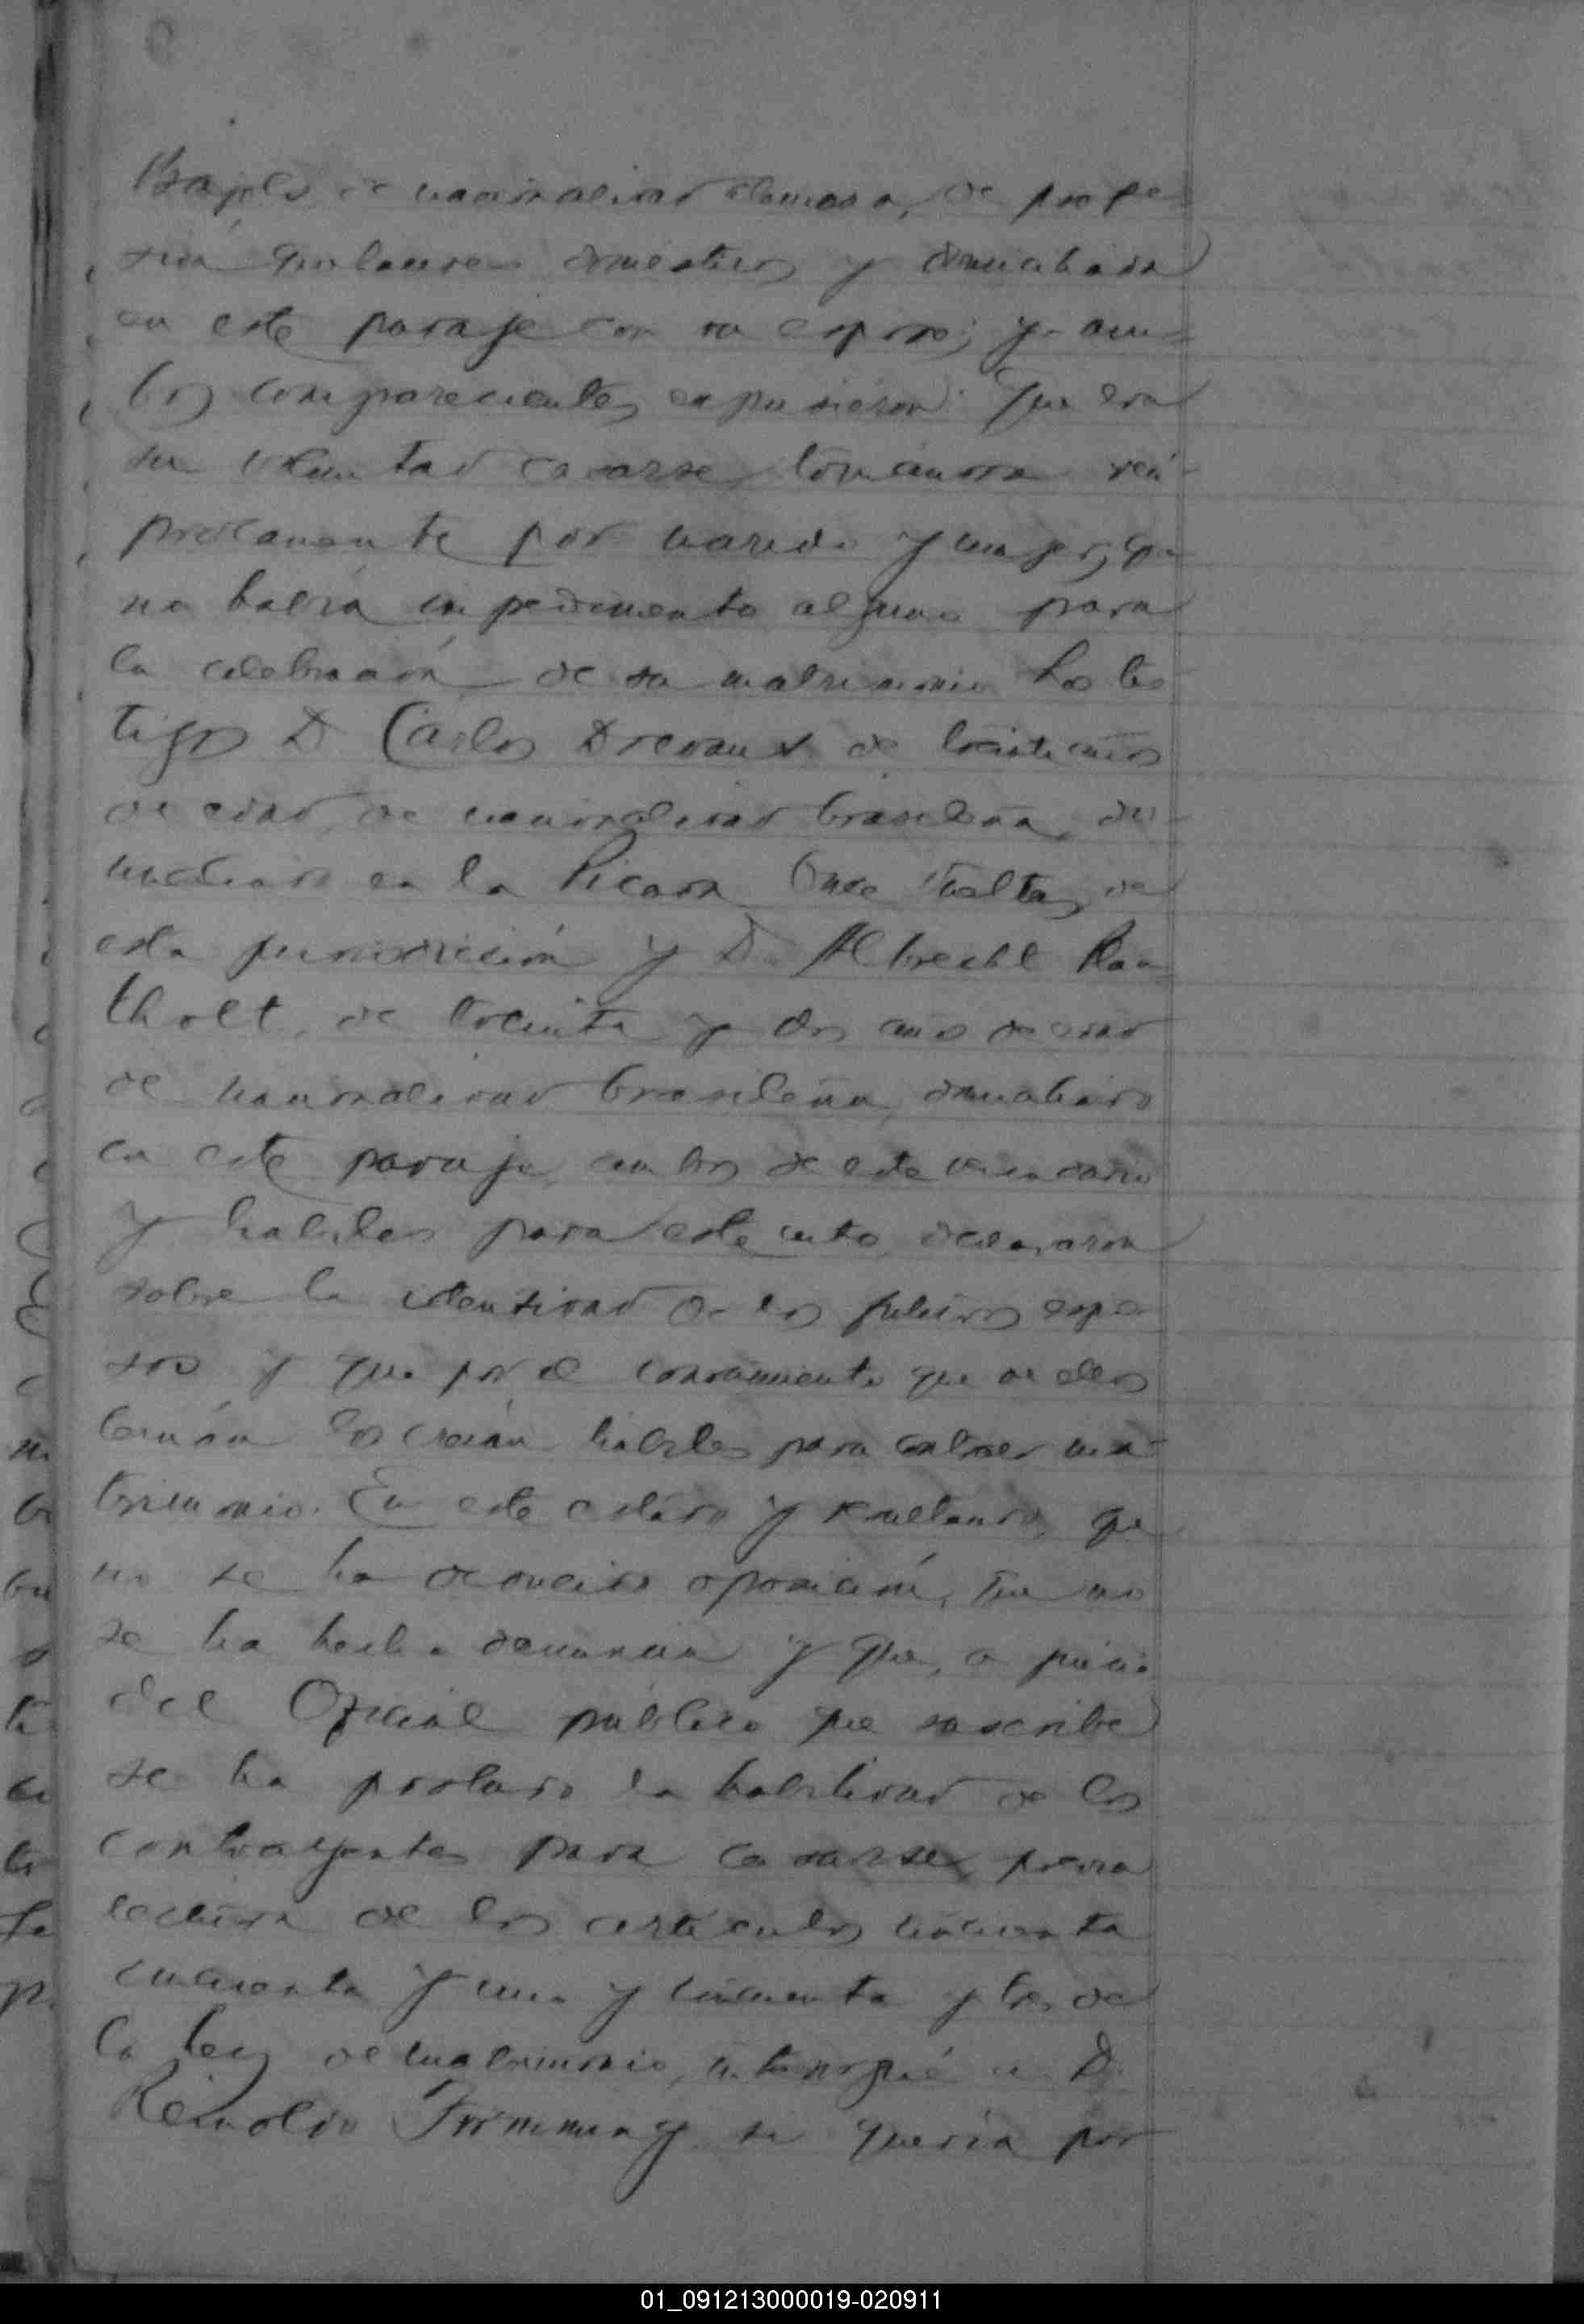 de nacionalidad alemana, de profe-
sión quehaceres domesticos y domiciliada
en este paraje con su esposo; y am-
bos comparecientes expusieron: Que era
su voluntad casarse tomandose reci-
procamente por marido y mujer, que
no había impedimento alguno para
la celebración de su matrimonio Los tes-
tigos D Carlos de treinta años
de edad, de nacionalidad brasileña, do-
miciliado en la Picada Once Vueltas, de
esta jurisdicción y D. Albrecht
de treinta y dos años de edad
de nacionalidad brasileña, domiciliado
en este paraje, ambos de este vecindario
y habiles para este acto, declararon
sobre la identidad de los futuros espo-
sos y que por el conocimiento que de ellos
tenían los creían habiles para contraer ma-
trimonio. En este estado y resultando, que
no se ha deducido oposición, que no
se ha hecho denuncia y que, a juicio
del Oficial público que suscribe
se ha probado la habilidad de los
contrayentes para casarse, previa
lectura de los artículos cincuenta
cincuenta y uno y cincuenta y tres de
la ley de matrimonio, interrogué a D.
Reinoldo si quería por
01_091213000019-020911